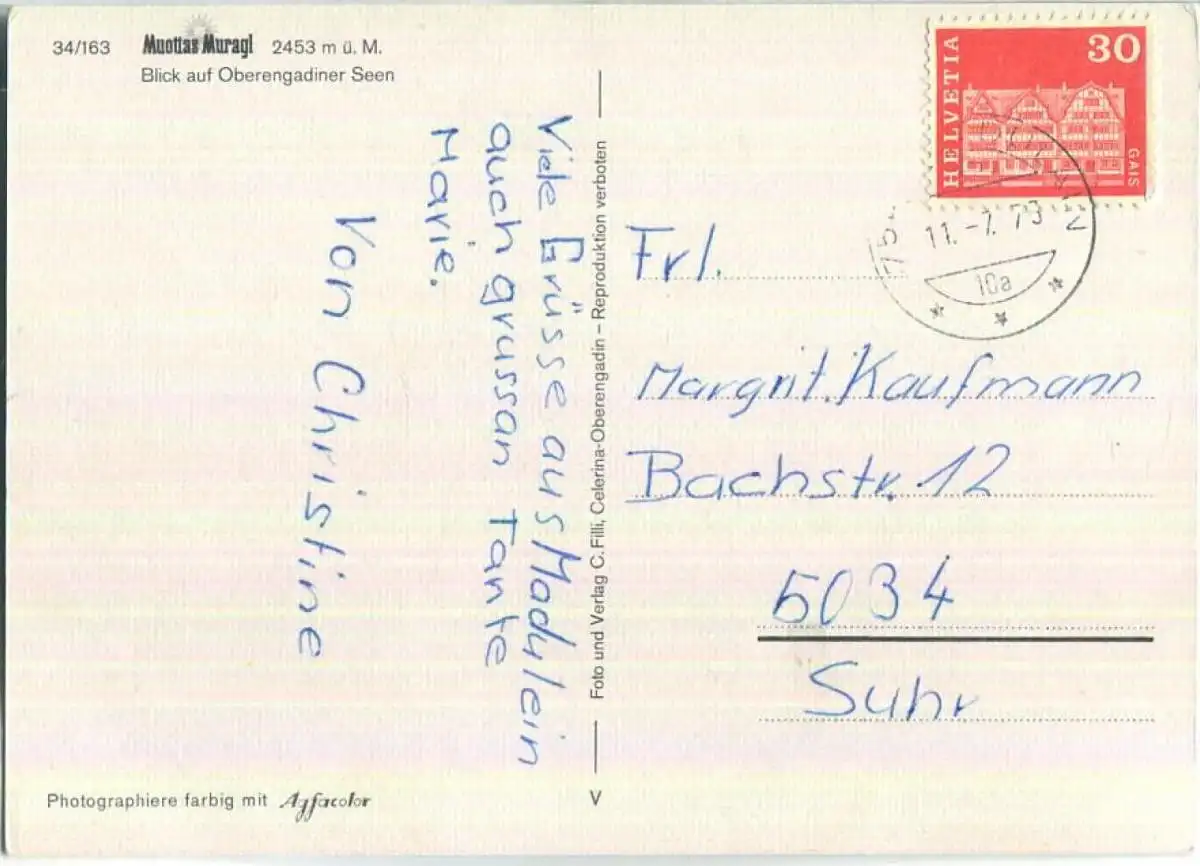 34/163 Muottas Muragl 2453 m ü. M.
Blick auf Oberengadiner Seen
Viele Grüsse aus Madulein
auch grüssan Tante
Marie.
Von Christine
Foto und Verlag C. Filli, Celerina-Oberengadin – Reproduktion verboten
HELVETIA
30
GAIS
75
11.-7. 73
10a
Frl.
Margrit. Kaufmann
Bachstr. 12
5034
Suhr
Photographiere farbig mit Agfacolor
V